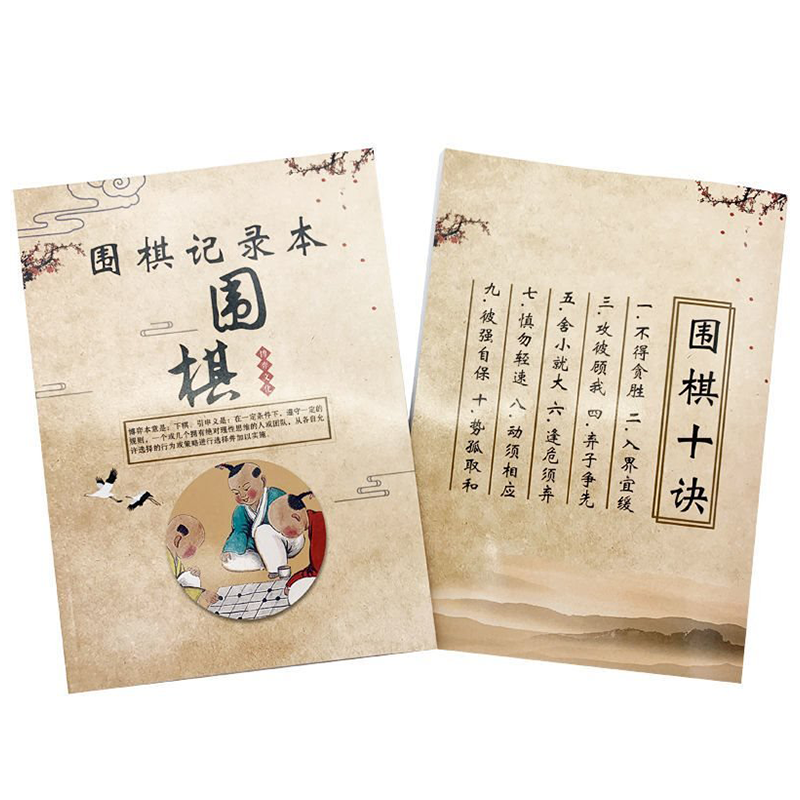 围棋记录本
围棋
博弈文化
博弈本意是：下棋。引申义是：在一定条件下，遵守一定的
规则，一个或几个拥有绝对理性思维的人或团队，从各自允
许选择的行为或策略进行选择并加以实施。
围棋十诀
一·不得贪胜 二·入界宜缓
三·攻彼顾我 四·弃子争先
五·舍小就大 六·逢危须弃
七·慎勿轻速 八·动须相应
九·彼强自保 十·势孤取和